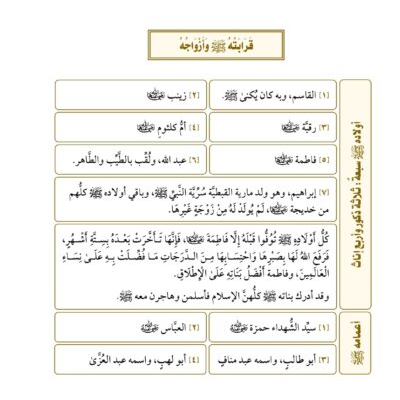 قَرَابَتُهُ ﷺ وَأَزْوَاجُهُ
أولاده ﷺ سبعة: ثلاثة ذكور وأربع إناث
[١] القاسم، وبه كان يُكنىٰ ﷺ.
[٢] زينب
[٣] رقيَّة
[٤] أمُّ كلثومٍ
[٥] فاطمة
[٦] عبد الله، ولُقِّب بالطَّيِّب والطَّاهر.
[٧] إبراهيم، وهو ولد مارية القبطيَّة سُرِّيَّة النَّبيِّ ﷺ، وباقي أولاده ﷺ كلُّهم
من خديجة، لَمْ يُولَدْ لَهُ مِنْ زَوْجَةٍ غَيْرِهَا.
كُلُّ أَوْلَادِهِ ﷺ تُوُفُّوا قَبْلَهُ إِلَّا فَاطِمَةَ، فَإِنَّهَا تَأَخَّرَتْ بَعْدَهُ بِسِتَّةِ أَشْهُرٍ،
فَرَفَعَ اللهُ لَهَا بِصَبْرِهَا وَاحْتِسَابِهَا مِنَ الدَّرَجَاتِ مَا فُضِّلَتْ بِهِ عَلَىٰ نِسَاءِ
الْعَالَمِينَ، وفاطمة أَفْضَلُ بَنَاتِهِ عَلَى الْإِطْلَاقِ.
وقد أدرك بناته ﷺ كلُّهنَّ الإسلام فأسلمن وهاجرن معه ﷺ.
أعمامه ﷺ
[١] سيِّد الشُّهداء حمزة
[٢] العبَّاس
[٣] أبو طالبٍ، واسمه عبد منافٍ
[٤] أبو لهبٍ، واسمه عبد العُزَّىٰ